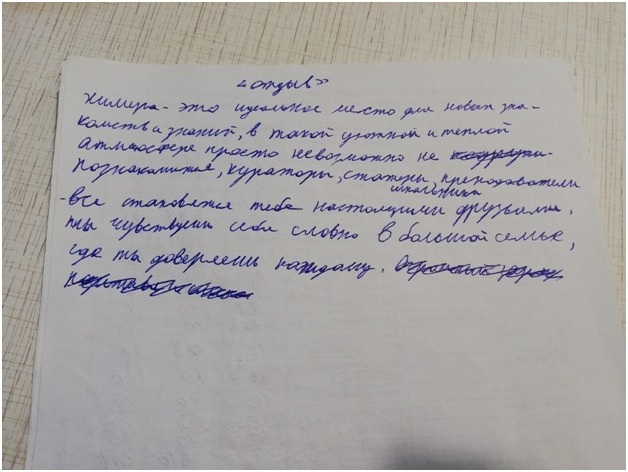 «отзыв»
Химера - это идеальное место для новых зна-
комств и знаний, в такой уютной и теплой
атмосфере просто невозможно не
познакомится, кураторы, стажеры, преподаватели
школьники
-все становятся тебе настоящими друзьями,
ты чувствуешь себя словно в большой семье,
где ты доверяешь каждому.